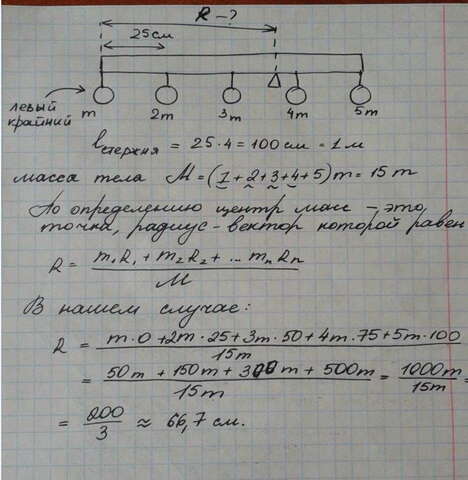 R - ?
25 см
левый
крайний
m 2m 3m 4m 5m
lстержня = 25·4 = 100 см = 1 м
масса тела M = (1+2+3+4+5)m = 15m
По определению центр масс - это
точка, радиус-вектор которой равен
R = m₁R₁ + m₂R₂ + ... mₙRₙ / M
В нашем случае:
R = m·0 + 2m·25 + 3m·50 + 4m·75 + 5m·100 / 15m
= 50m + 150m + 300m + 500m / 15m = 1000m / 15m =
= 200 / 3 ≈ 66,7 см.